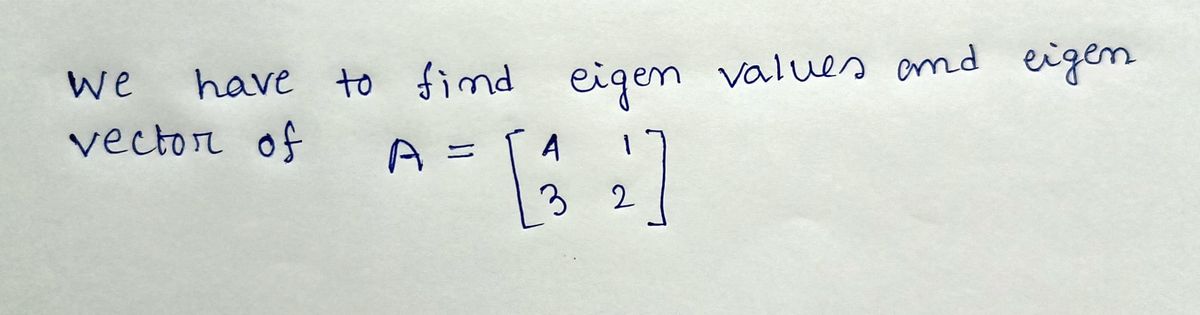 we have to find eigen values and eigen
vector of A = [4 1
3 2]